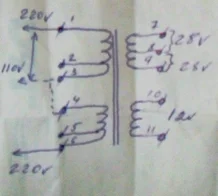 220v 1 7
28v
110v 2 8
3 9 28v
4 10
12v
5 11
6
220v